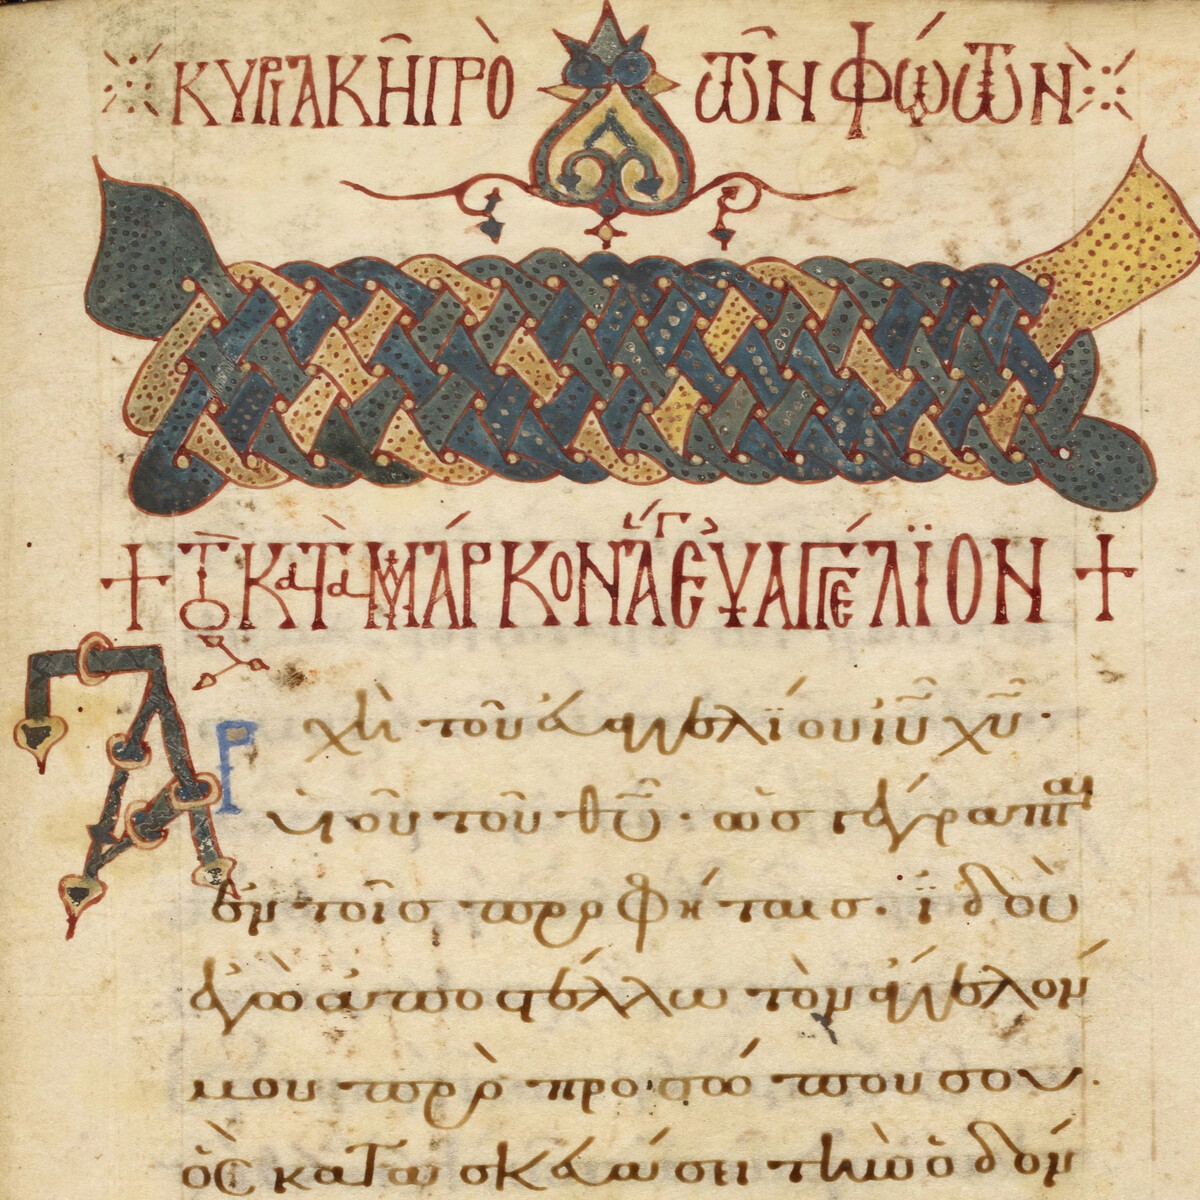 ΚΥΡΙΑΚῆ ΠΡὸ τῶΝ ΦώτωΝ
+ Τὸ Κατὰ ΜάΡΚοΝ ἅγ ΕὐΑΓΓέΛΪΟΝ +
Ἀρχὴ τοῦ εὐαγγελίου ιῦ χῦ·
υἱοῦ τοῦ θῦ· ὡς γέγραπται
ἐν τοῖς προφήταις· ἰδοὺ
ἐγὼ ἀποστέλλω τὸν ἄγγελόν
μου πρὸ προσώπου σου·
ὃς κατασκευάσει τὴν ὁδόν